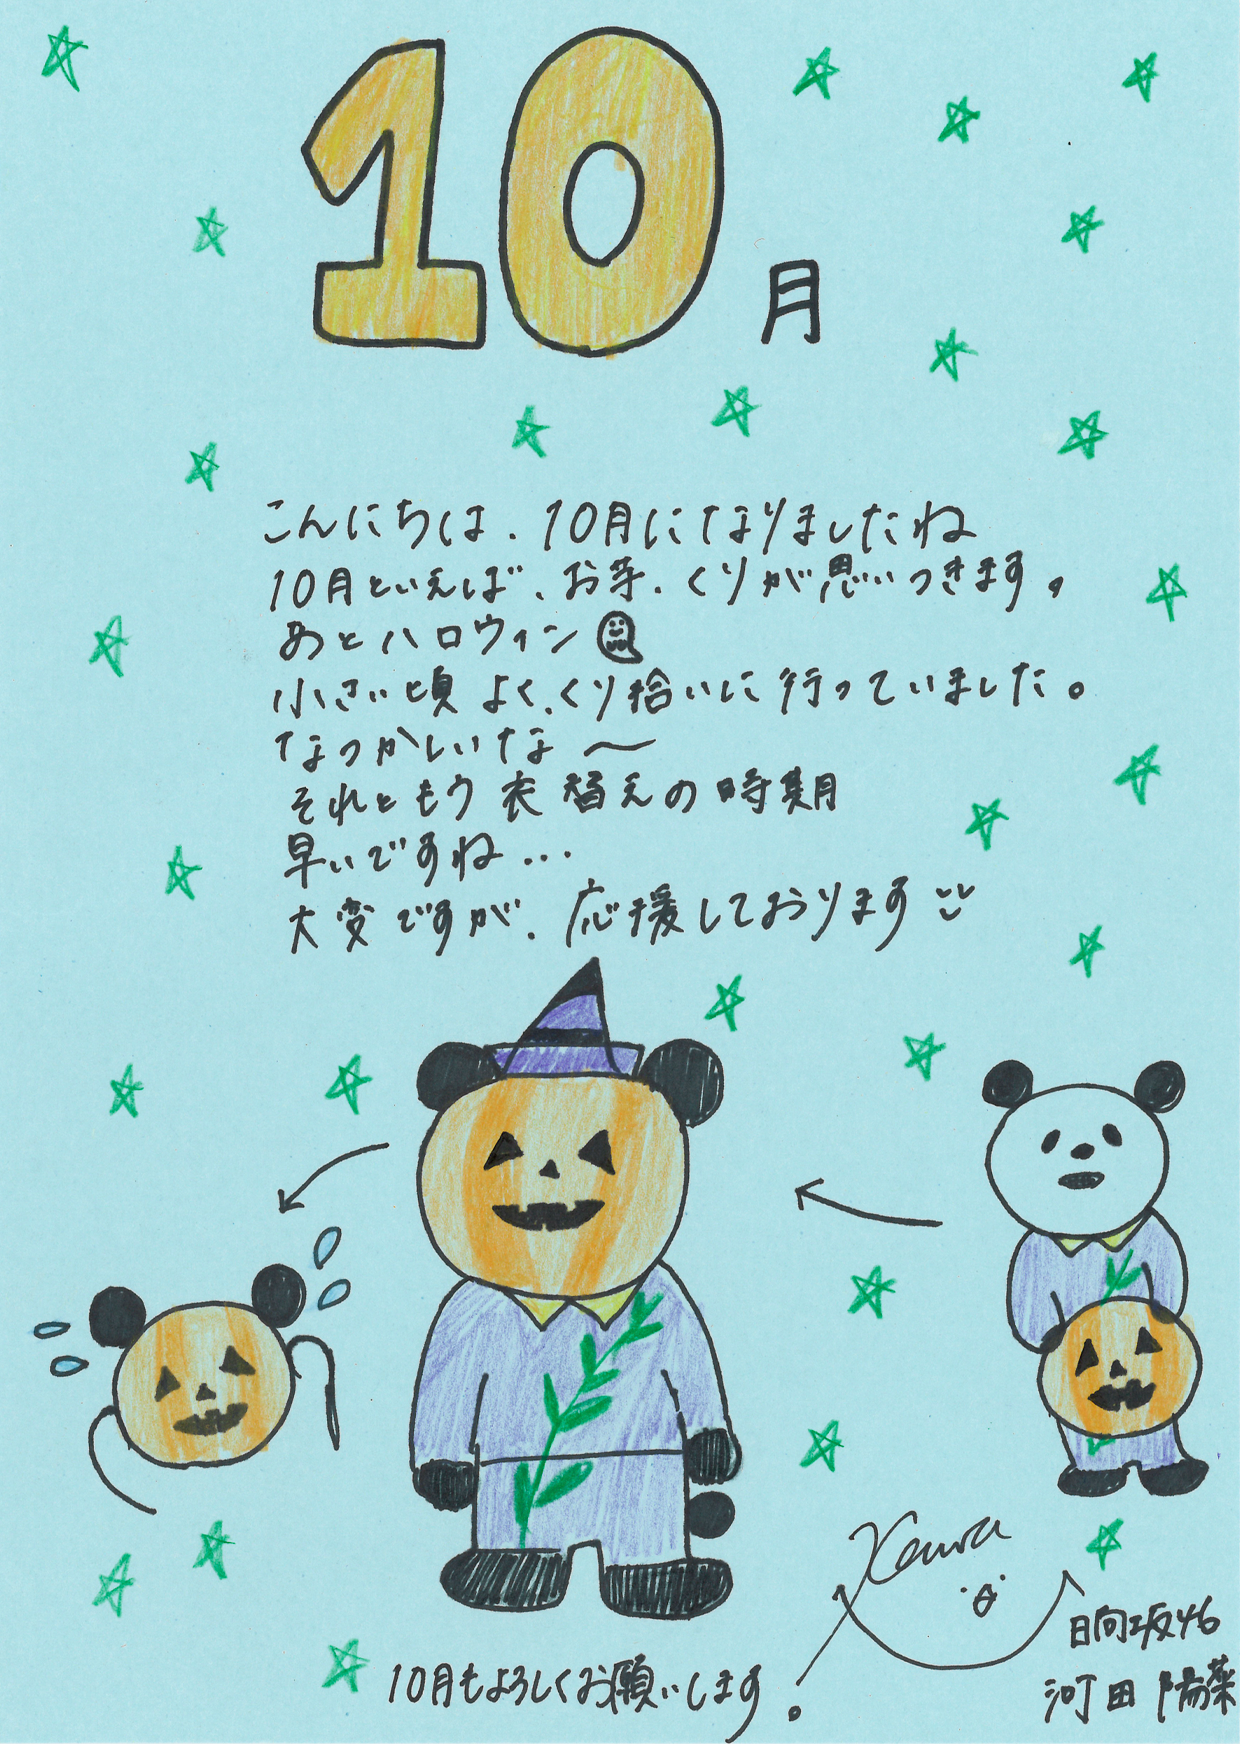 10月
こんにちは、10月になりましたね
10月といえば、お芋、くりが思いつきます。
あとハロウィン
小さい頃よく、くり拾いに行っていました。
なつかしいな〜
それともう衣替えの時期
早いですね...
大変ですが、応援しております
Kawa
日向坂46
10月もよろしくお願いします。
河田陽菜